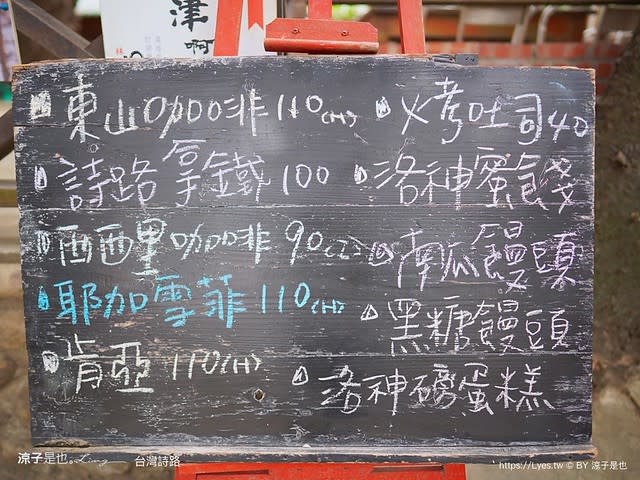 津
啊
東山咖啡 110 (H)
詩路拿鐵 100
西西里咖啡 90 (I)
耶加雪菲 110 (H)
肯亞 110 (H)
火考吐司 40
洛神蜜餞
南瓜饅頭
黑糖饅頭
洛神磅蛋糕
涼子是也。
台灣詩路
https://Lyes.tw © BY 涼子是也